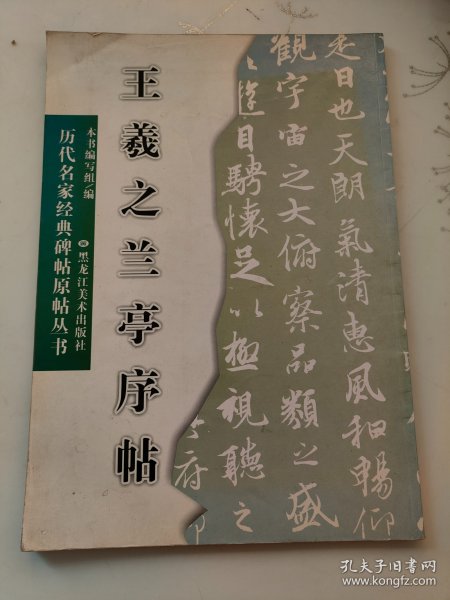 王羲之兰亭序帖
本书编写组/编
黑龙江美术出版社
历代名家经典碑帖原帖丛书
是日也天朗氣清惠風和暢仰
觀宇宙之大俯察品類之盛
遊目騁懷足以極視聽之
孔夫子旧书网
www.kongfz.com